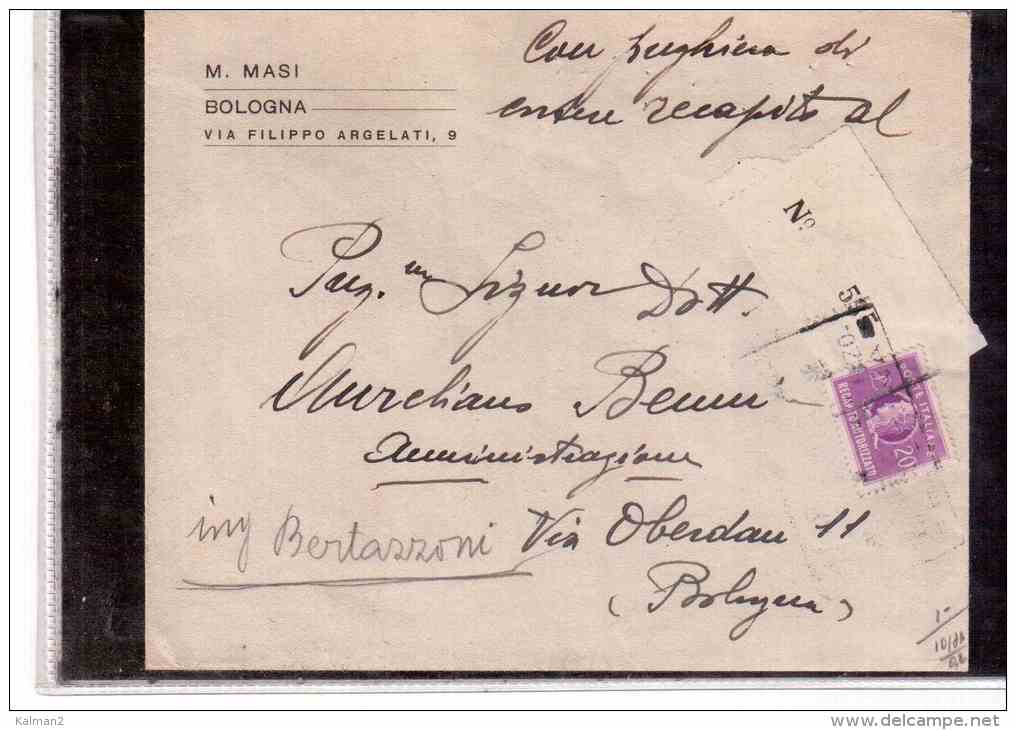 M. MASI
BOLOGNA
VIA FILIPPO ARGELATI, 9
Con preghiera di
essere recapito al
Nº
Preg. mo Signor Dott.
Aureliano
Amministrazione
ing Bertazzoni
Via Oberdan 11
(Bologna)
POSTE ITALIANE
RECAPITO AUTORIZZATO
20
1-
Kalman2
www.delcampe.net